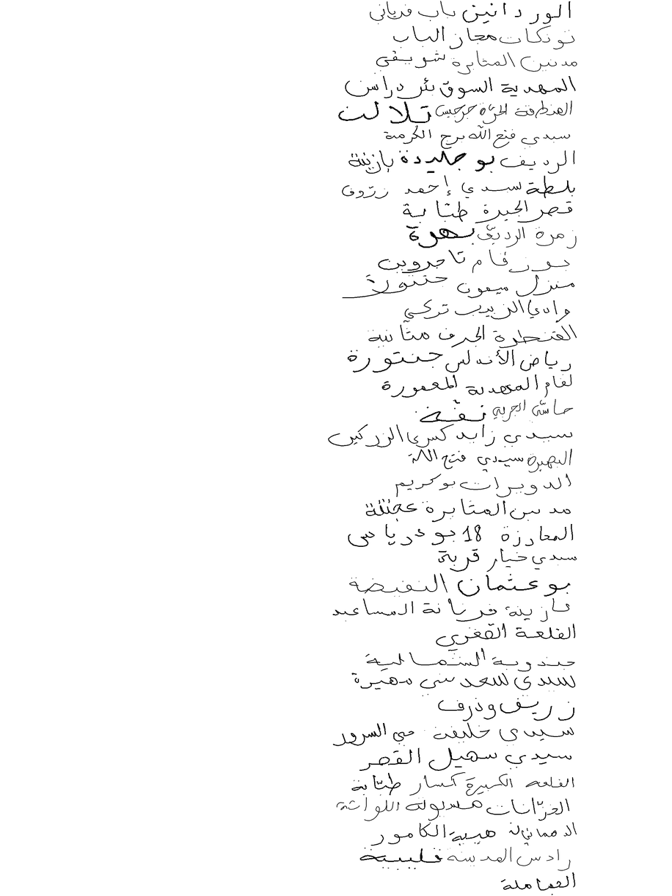 الوردانين باب فرياني
تونكات مجاز الباب
مدنين المثابرة شويفي
المهدية السوق بئر دراس
القنطرة جرجيس تلالت
سيدي فتح الله برج الكرمة
الرديف بوجليدة بازينة
بلطة سيدي إحمد زروق
قصر الجيرة طبابة
زمرة الرديف بهرة
جوز قام تاجروين
منزل ميمون حنتولا
وادي الزيت تركي
القنطرة الجرف مثانية
رياض الأندلس جنتورة
لقام المهدية المعمورة
حاشي الجربي نقة
سيدي زايد كسرى الزركين
البحيرة سيدي فتح الله
الدويرات بوكريم
مدنين المثابرة عجنقة
المعازرة 18 بودرياس
سيدي خيار قرية
بوعثمان النفيضة
بازينة فريانة المساعيد
القلعة القغري
جندوبة الشمالية
سيدي سعد بني مهيرة
زريف وذرف
سيدي خليفة حي السرور
سيدي سهيل القصر
القلعة الكبيرة كسار طبابة
الخزانات ملولة اللواتة
الدهماني هيبة الكامور
رادس المدينة قليبية
القماملة